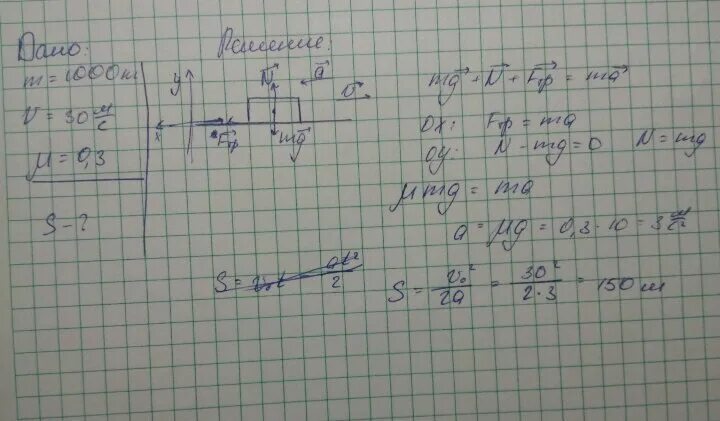 Дано:
m = 1000 кг
v = 30 м/с
μ = 0,3
S - ?
Решение:
y
x
N
a
v
Fтр
mg
mg + N + Fтр = ma
OX: Fтр = ma
OY: N - mg = 0 N = mg
μmg = ma
a = μg = 0,3 · 10 = 3 м/с²
S = v₀t at²/2
S = v₀²/2a = 30²/2·3 = 150 м